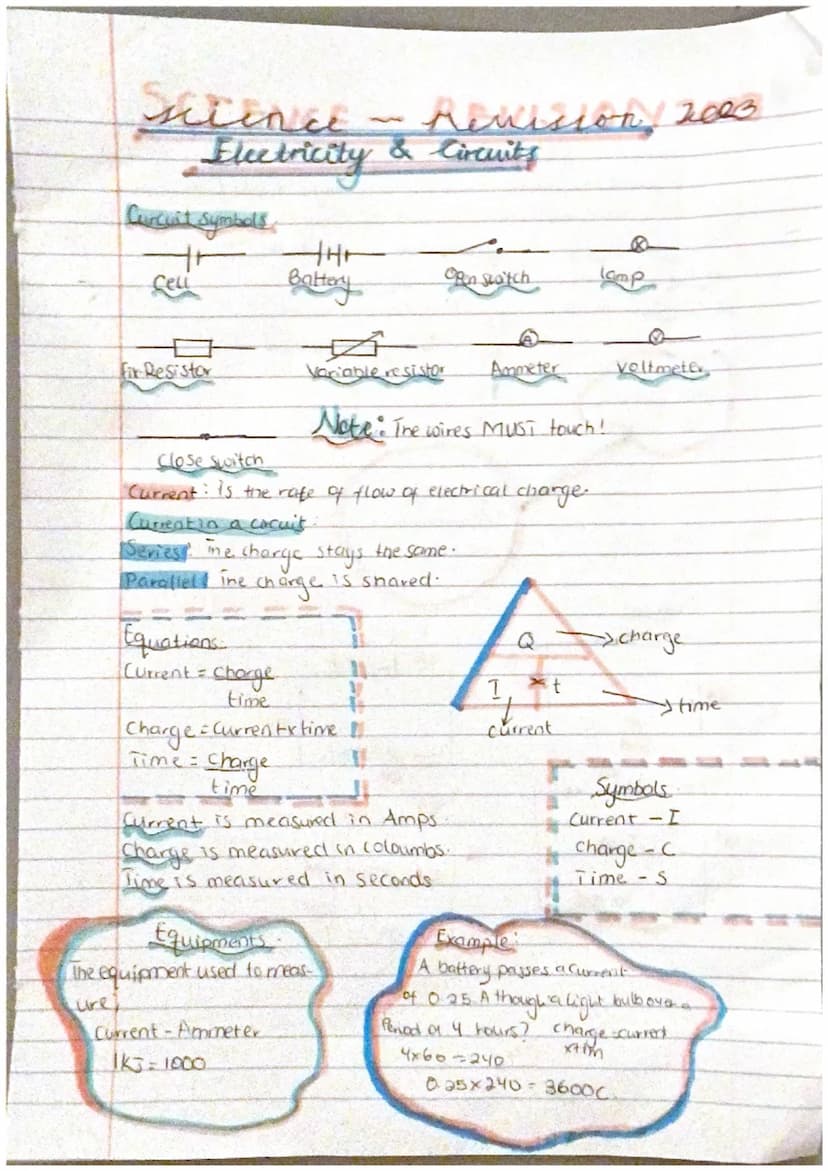 SCIENCE REVISION
Science - Revision 2023
Electricity & Circuits
Curcuit symbols
Cell Battery Open switch lamp
A V
Fix Resistor Variable resistor Ammeter Voltmeter
Note: The wires MUST touch!
Close switch
Current: is the rate of flow of electrical charge.
Current in a cocuit:
Series: The charge stays the same.
Parallel: The charge is shared.
Equations:
Current = charge
time
Charge = Current x time
Time = Charge
time
Q charge
I x t time
current
Symbols
Current - I
Charge - C
Time - S
Current is measured in Amps.
Charge is measured in Coloumbs.
Time is measured in seconds
Equipments.
The equipment used to meas-
ure;
Current - Ammeter
1KJ = 1000
Example:
A battery passes a current
of 0.25 A though a light bulb over a
Period of 4 hours? Charge = current
x tim
4x60 = 240
0.25x240 = 3600C